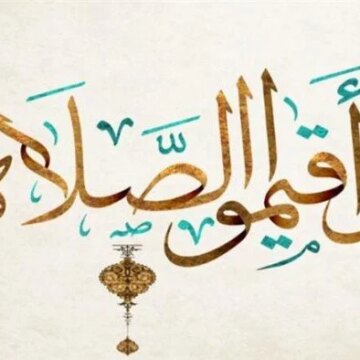 وأقيموا الصَّلاة